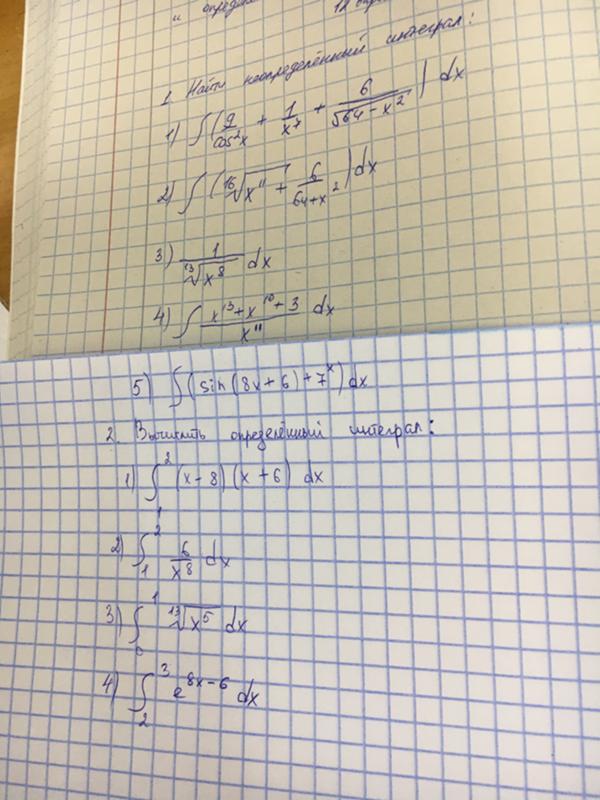 1. Найти неопределённый интеграл:
1) ∫ (9/cos²x + 1/x⁷ + 6/√(64-x²)) dx
2) ∫ (¹⁶√x¹¹ + 6/(64+x²)) dx
3) 1/¹³√x⁸ dx
4) ∫ (x¹³+x¹⁰+3)/x¹¹ dx
5) ∫ (sin(8x+6)+7ˣ) dx
2. Вычислить определённый интеграл:
1) ∫₁² (x-8)(x+6) dx
2) ∫₁² 6/x⁸ dx
3) ∫₀¹ ¹³√x⁵ dx
4) ∫₂³ e⁸ˣ⁻⁶ dx